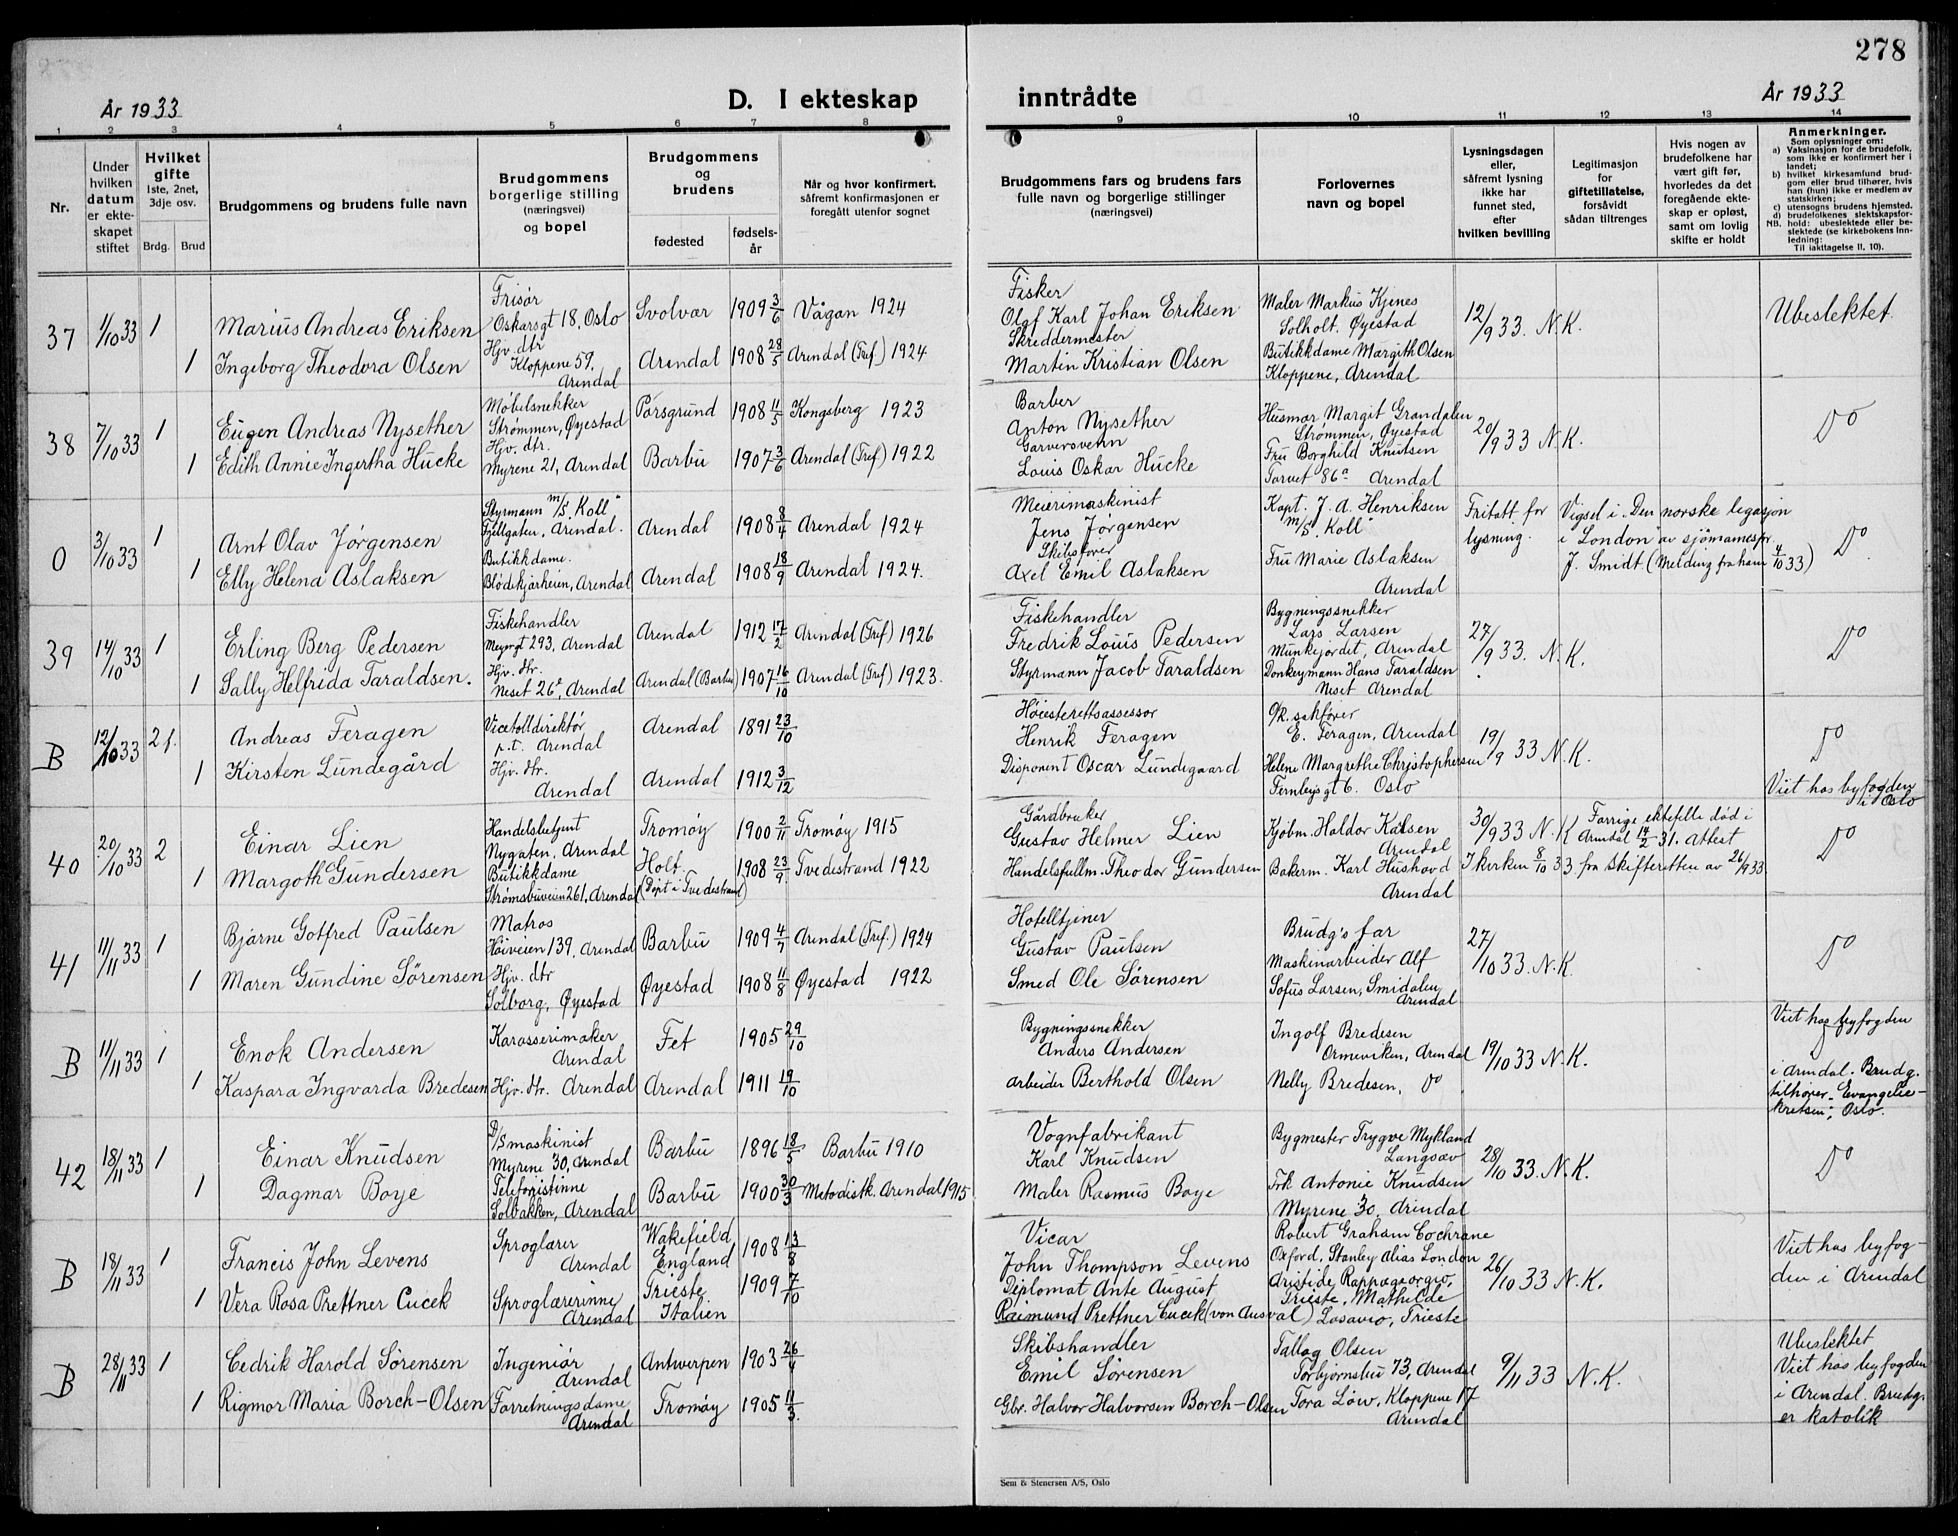 278
År 1933
D. I ekteskap
inntrådte
År 1933
1 2 3 4 5 6 7 8 9 10 11 12 13 14
Nr.
Under hvilken datum er ekteskapet stiftet
Hvilket gifte
1ste, 2net, 3dje osv.
Brdg. Brud
Brudgommens og brudens fulle navn
Brudgommens borgerlige stilling (næringsvei) og bopel
Brudgommens og brudens
fødested
fødselsår
Når og hvor konfirmert, såfremt konfirmasjonen er foregått utenfor sognet
Brudgommens fars og brudens fars fulle navn og borgerlige stillinger (næringsvei)
Forlovernes navn og bopel
Lysningsdagen eller, såfremt lysning ikke har funnet sted, efter hvilken bevilling
Legitimasjon for giftetillatelse, forsåvidt sådan tiltrenges
Hvis nogen av brudefolkene har vært gift før, hvorledes da det foregående ekteskap er opløst, samt om lovlig skifte er holdt
Anmerkninger.
Som oplysninger om:
a) Vaksinasjon for de brudefolk, som ikke er konfirmert her i landet;
b) hvilket kirkesamfund brudgom eller brud tilhører, hvis han (hun) ikke er medlem av statskirken;
c) utensogns brudens hjemsted.
d) brudefolkenes slektskapsforhold: ubeslektede eller beslektede (se kirkebokens Innledning:
NB.
Til iakttagelse II. 10).
37 1/10 33 1 Marius Andreas Eriksen Frisør Oskarsgt 18, Oslo Svolvær 1909 3/6 Vågan 1924
1 Ingeborg Theodora Olsen Hjv. dtr Kloppene 59, Arendal Arendal 1908 28/5 Arendal (Tref) 1924
Fisker Olaf Karl Johan Eriksen Maler Markus Kjenes Solholt, Øyestad 12/9 33. N.K. Ubeslektet.
Skreddermester Martin Kristian Olsen Butikkdame Margith Olsen Kloppene, Arendal
38 7/10 33 1 Eugen Andreas Nysether Møbelsnekker Strømmen, Øyestad Porsgrund 1908 11/5 Kongsberg 1923
1 Edith Annie Ingertha Hucke Hjv. dtr. Myrene 21, Arendal Barbu 1907 3/6 Arendal (Tref) 1922
Barber Anton Nysether Husmor Margit Grandalen Strømmen, Øyestad 20/9 33 N.K. Do
Garversvenn Louis Oskar Hucke Fru Borghild Knutsen Torvet 86a Arendal
0 3/10 33 1 Arnt Olav Jørgensen Styrmann m/s. "Koll" Fjellgaten, Arendal. Arendal 1908 8/4 Arendal 1924.
1 Elly Helena Aslaksen Butikkdame. Blødekjærheien, Arendal Arendal 1908 18/9 Arendal 1924.
Meierimaskinist Jens Jørgensen Kapt. J. A. Henriksen m/s. "Koll" Fritatt for lysning. Vigsel i "Den norske legasjon i London" av sjömannspr. J. Smidt (Melding fra ham 4/10 33) Do
Skibsfører Axel Emil Aslaksen Fru Marie Aslaksen Arendal
39 14/10 33 1 Erling Berg Pedersen Fiskehandler 293, Arendal Arendal 1912 17/2 Arendal (Tref) 1926
1 Sally Helfrida Taraldsen. Hjv. dtr. Neset 26a, Arendal Arendal (Barbu) 1907 16/10 Arendal (Tref) 1923.
Fiskehandler Fredrik Louis Pedersen Bygningssnekker Lars Larsen Munkejordet, Arendal 27/9 33. N.K. Do
Styrmann Jacob Taraldsen Donkeymann Hans Taraldsen Neset Arendal
B 12/10 33 2 f. Andreas Feragen Vicetolldirektør p.t. Arendal Arendal 1891 23/10
1 Kirsten Lundegård Hjv. dtr. Arendal Arendal 1912 3/12
Høiesterettsassessor Henrik Feragen O.r. sakfører E. Feragen, Arendal 19/9 33 N.K. Do
Disponent Oscar Lundegaard Helene Margrethe Christophersen Fernleysgt 6. Oslo Viet hos byfogden i Oslo
40 20/10 33 2 Einar Lien Handelsbetjent Nygaten, Arendal Tromøy 1900 2/11 Tromøy 1915
1 Margoth Gundersen Butikkdame Strømsbuveien 261, Arendal Holt (Døpt i Tvedestrand) 1908 23/9 Tvedestrand 1922
Gårdbruker Gustav Helmer Lien Kjøbm. Haldor Karlsen Arendal 30/9 33 N.K Forrige ektefelle död i Arendal 14/2 31. Attest Do
Handelsfullm. Theodor Gundersen Bakerm. Karl Hushovd Arendal I kirken 8/10 33 fra skifteretten av 26/9 33
41 11/11 33 1 Bjarne Gotfred Paulsen Matros Høiveien 139, Arendal Barbu 1909 4/7 Arendal (Tref.) 1924
1 Maren Gundine Sørensen Hjv. dtr Solborg, Øyestad Øyestad 1908 11/8 Øyestad 1922
Hotelltjener Gustav Paulsen Brudg's far 27/10 33. N.K. Do
Smed Ole Sørensen Maskinarbeider Alf Sofus Larsen, Smidalen, Arendal
B 11/11 33 1 Enok Andersen Karosserimaker Arendal Fet 1905 29/10
1 Kaspara Ingvarda Bredesen Hjv. dtr. Arendal Arendal 1911 19/10
Bygningssnekker Anders Andersen Ingolf Bredesen Ormeviken, Arendal 19/10 33 N.K. Viet hos byfogden
arbeider Berthold Olsen Nelly Bredesen, Do i Arendal. Brudg. tilhører "Evangeliekretsen", Oslo.
42 18/11 33 1 Einar Knudsen D/S maskinist Myrene 30, Arendal Barbu 1896 18/5 Barbu 1910
1 Dagmar Boye Telefonistinne Solbakken, Arendal Barbu 1900 30/3 Metodistk. Arendal 1915
Vognfabrikant Karl Knudsen Bygmester Trygve Mykland Langsæv 28/10 33 N.K. Do
Maler Rasmus Boye Frk Antonie Knudsen Myrene 30, Arendal
B 18/11 33 1 Francis John Levens Sproglærer Arendal Wakefield, England 1908 13/8
1 Vera Rosa Prettner Cucek Sproglærerinne Arendal Trieste Italien 1909 7/10
Vicar John Thompson Levens Robert Graham Cochrane Oxford, Stanley alias London 26/10 33 N.K. Viet hos byfogden i Arendal
Diplomat Ante August Raimund Prettner Cucek (von Ausval) Aristide Rappageorgio, Trieste, Mathilde Losavio, Trieste
B 28/11 33 1 Cedrik Harold Sørensen Ingeniør Arendal Antwerpen 1903 26/4
1 Rigmor Maria Borch-Olsen Forretningsdame Arendal Tromøy 1905 11/3.
Skibshandler Emil Sørensen Tallag Olsen Torbjørnsbu 73, Arendal 9/11 33 N.K. Ubeslektet Viet hos byfogden i Arendal. Brudg. er katolik
Gbr. Halvor Halvorsen Borch-Olsen Tora Löw, Kloppene 17 Arendal
Sem & Stenersen A/S, Oslo